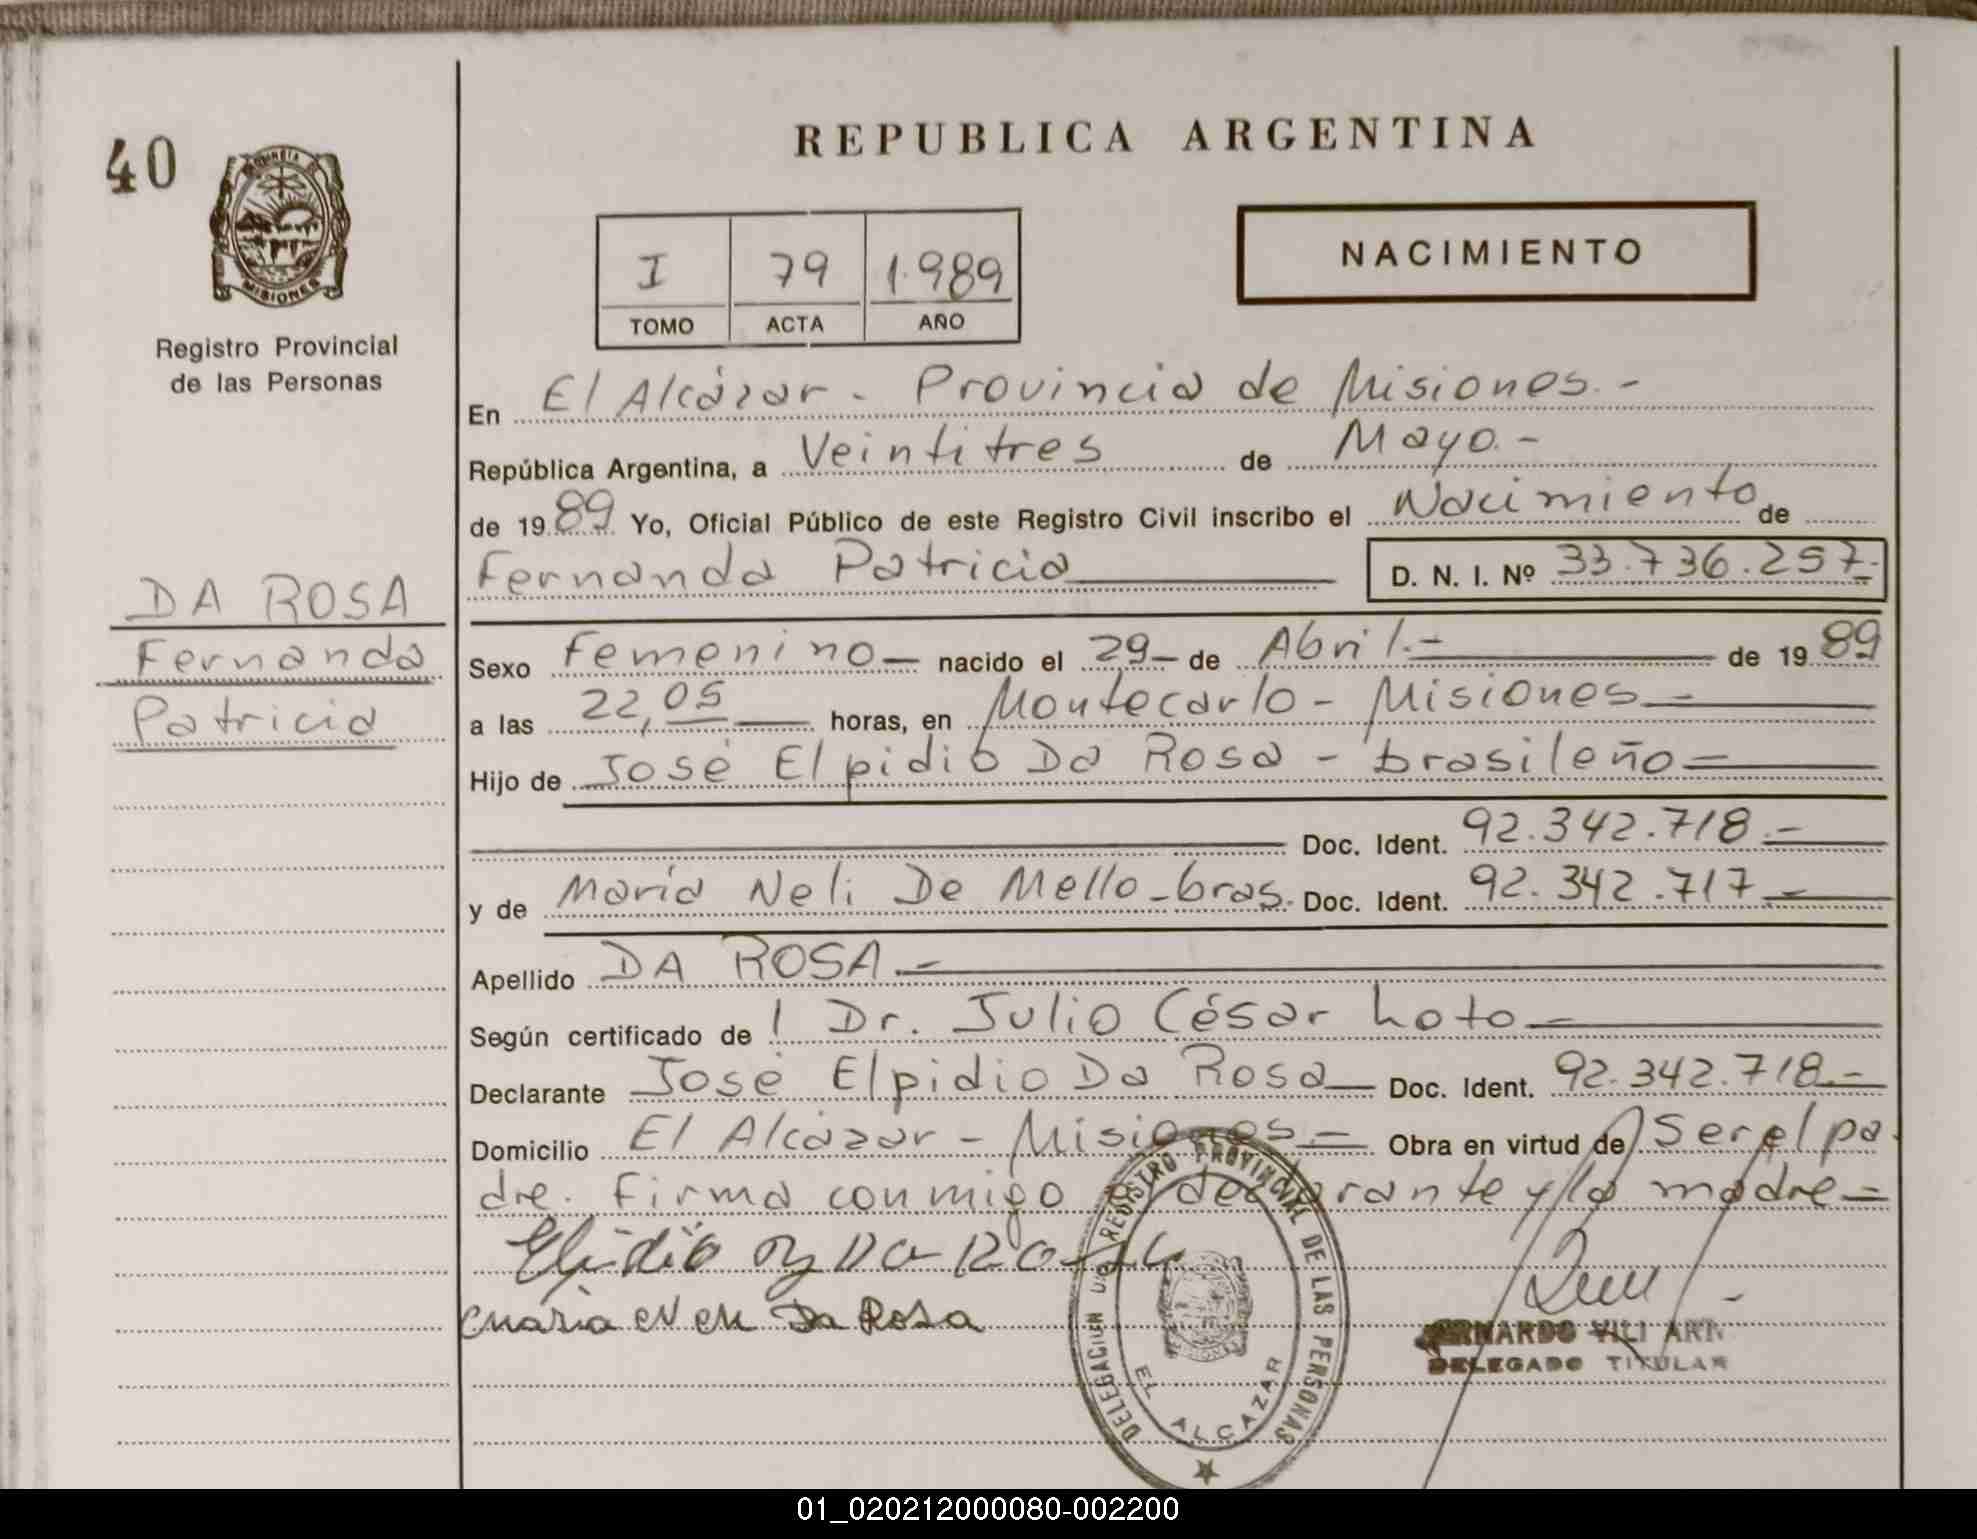 40
PROVINCIA DE
MISIONES
Registro Provincial
de las Personas
DA ROSA
Fernanda
Patricia
REPUBLICA ARGENTINA
I 79 1.989
TOMO ACTA AÑO
NACIMIENTO
En El Alcázar - Provincia de Misiones.-
República Argentina, a Veintitres de Mayo.-
de 1989 Yo, Oficial Público de este Registro Civil inscribo el Nacimiento de
Fernanda Patricia D. N. I. Nº 33.736.257-
Sexo Femenino nacido el 29 de Abril.- de 1989
a las 22,05 horas, en Montecarlo - Misiones
Hijo de José Elpidio Da Rosa - brasileño
Doc. Ident. 92.342.718.-
y de María Neli De Mello - bras. Doc. Ident. 92.342.717.-
Apellido DA ROSA.-
Según certificado de l Dr. Julio César Loto
Declarante José Elpidio Da Rosa Doc. Ident. 92.342.718.-
Domicilio El Alcázar - Misiones.- Obra en virtud de Ser el pa-
dre. Firma conmigo el declarante y la madre
Da Rosa
DELEGADO TITULAR
DELEGACION DEL REGISTRO PROVINCIAL DE LAS PERSONAS
EL ALCAZAR
01_020212000080-002200